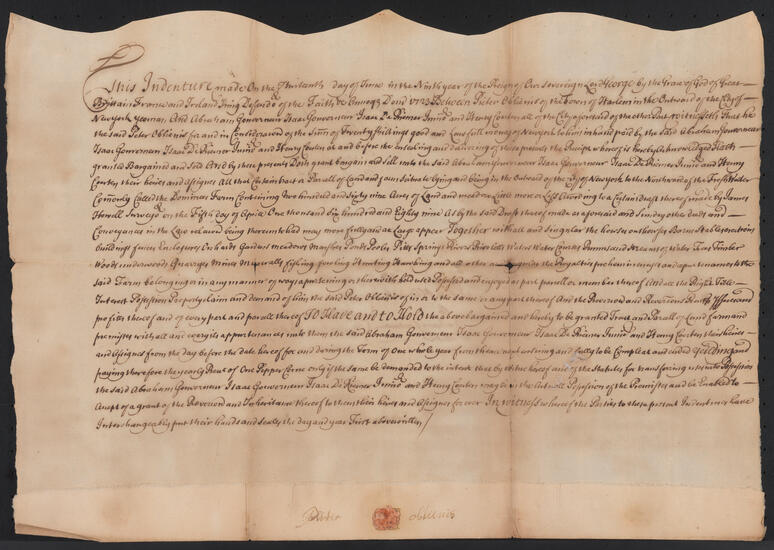 This Indenture made On the Thirteenth day of June in the Ninth year of the Reign of Our Sovereign Lord George by the Grace of God of Great
Brittain France and Ireland King Defendr of the Faith &c Annoq Dom 1723 Between Peter Oblenis of the Town of Harlem in the Outward of the City of
New York yeoman And Abraham Gouverneur Isaac Gouverneur Isaac De Riemer Junior and Henry Coerten all of the City aforesaid of the other Part Witnesseth That he
the said Peter Oblenis for and in Consideration of the Summ of Twenty Shillings good and Lawfull money of New york to him in hand paid by the said Abraham Gouverneur
Isaac Gouverneur Isaac De Riemer Junior and Henry Coerten at and before the ensealing and delivery of these presents the Receipt whereof is hereby Acknowledged Hath
granted Bargained and Sold And by these presents Doth grant bargain and sell unto the said Abraham Gouverneur Isaac Gouverneur Isaac De Riemer Junior and Henry
Coerten their heires and Assignes All that Certain tract or Parcell of Land and farm Scituate lying and being in the Outward of the City of New York to the Northward of the Fresh Water
Comonly Called the Dominees Farm Containing Two hundred and Sixty nine Acres of Land and meadow Little more or Less According to a Certain Draft thereof made by James
Howell Surveyor on the Fifth day of Aprill One thousand Six hundred and Eighty nine As by the said Draft thereof made as aforesaid and Sundry other deeds and
Conveyances in the Law relation being thereunto had may more fully and at Large appear Together with all and Singular the houses outhouses Barns Stables erections
buildings fences Enclosures Orchards Gardens meadows Marshes Ponds Pooles Pitts Springs Rivers Rivoletts Waters Water Courses Runns and Streams of Water Trees Timber
Woods underwoods Quarreys Mines Mineralls fishing fowling Hunting Hawking and all other Royalties and appurtenances to the
said Farm belonging or in any manner of way appertaining or therewith held used Possessed and enjoyed as part parcell or member thereof And all the Right Title
Interest Possession Property claim and demand of him the said Peter Oblenis of in or to the same or any part thereof And the Reversion and Reversions Rents Issues and
profits thereof and of every part and parcell thereof To Have and to Hold the above bargained and hereby to be granted Tract and Parcell of Land Farm and
premisses with all and every its appurtenances unto them the said Abraham Gouverneur Isaac Gouverneur Isaac De Riemer Junior and Henry Coerten their heires
and Assignes from the day before the date hereof for and during the Term of One whole year from thence next ensuing and fully to be Compleat and ended Yeilding and
paying therefore the yearly Rent of One Pepper Corne only if the same be demanded to the intent that by Virtue hereof and of the Statute for transfering uses into Possession
the said Abraham Gouverneur Isaac Gouverneur Isaac De Riemer Junior and Henry Coerten may be in the Actuall Possession of the Premisses and be Enabled to
Accept of a grant of the Reversion and Inheritance thereof to them their heires and Assignes for ever In Witness whereof the Parties to these present Indentures have
Interchangeably put their hands and seales the day and year First above written /
Peter Oblenis